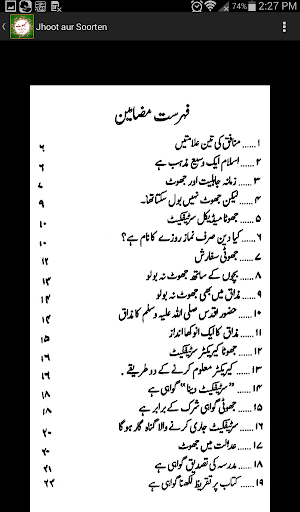 74% 2:27 PM
Jhoot aur Soorten
فہرست مضامین
۱ ...... منافق کی تین علامتیں ۶
۲ ...... اسلام ایک وسیع مذہب ہے ۶
۳ ...... زمانہ جاہلیت اور جھوٹ ۷
۴ ...... لیکن جھوٹ نہیں بول سکتا تھا۔ ۹
۵ ...... جھوٹا میڈیکل سرٹیفکیٹ ۱۰
۶ ...... کیا دین صرف نماز روزے کا نام ہے؟ ۱۰
۷ ...... جھوٹی سفارش ۱۲
۸ ...... بچوں کے ساتھ جھوٹ نہ بولو ۱۳
۹ ...... مذاق میں بھی جھوٹ نہ بولو ۱۳
۱۰ ...... حضور اقدس صلی اللہ علیہ وسلم کا مذاق ۱۴
۱۱ ...... مذاق کا ایک انوکھا انداز ۱۵
۱۲ ...... جھوٹا کیریکٹر سرٹیفکیٹ ۱۶
۱۳ ...... کیریکٹر معلوم کرنے کے دو طریقے۔ ۱۶
۱۴ ...... "سرٹیفکیٹ دینا" گواہی ہے ۱۸
۱۵ ...... جھوٹی گواہی شرک کے برابر ہے ۱۸
۱۶ ...... سرٹیفکیٹ جاری کرنے والا گناہ گار ہو گا ۲۰
۱۷ ...... عدالت میں جھوٹ ۲۰
۱۸ ...... مدرسہ کی تصدیق گواہی ہے ۲۱
۱۹ ...... کتاب پر تقریظ لکھنا گواہی ہے ۲۲